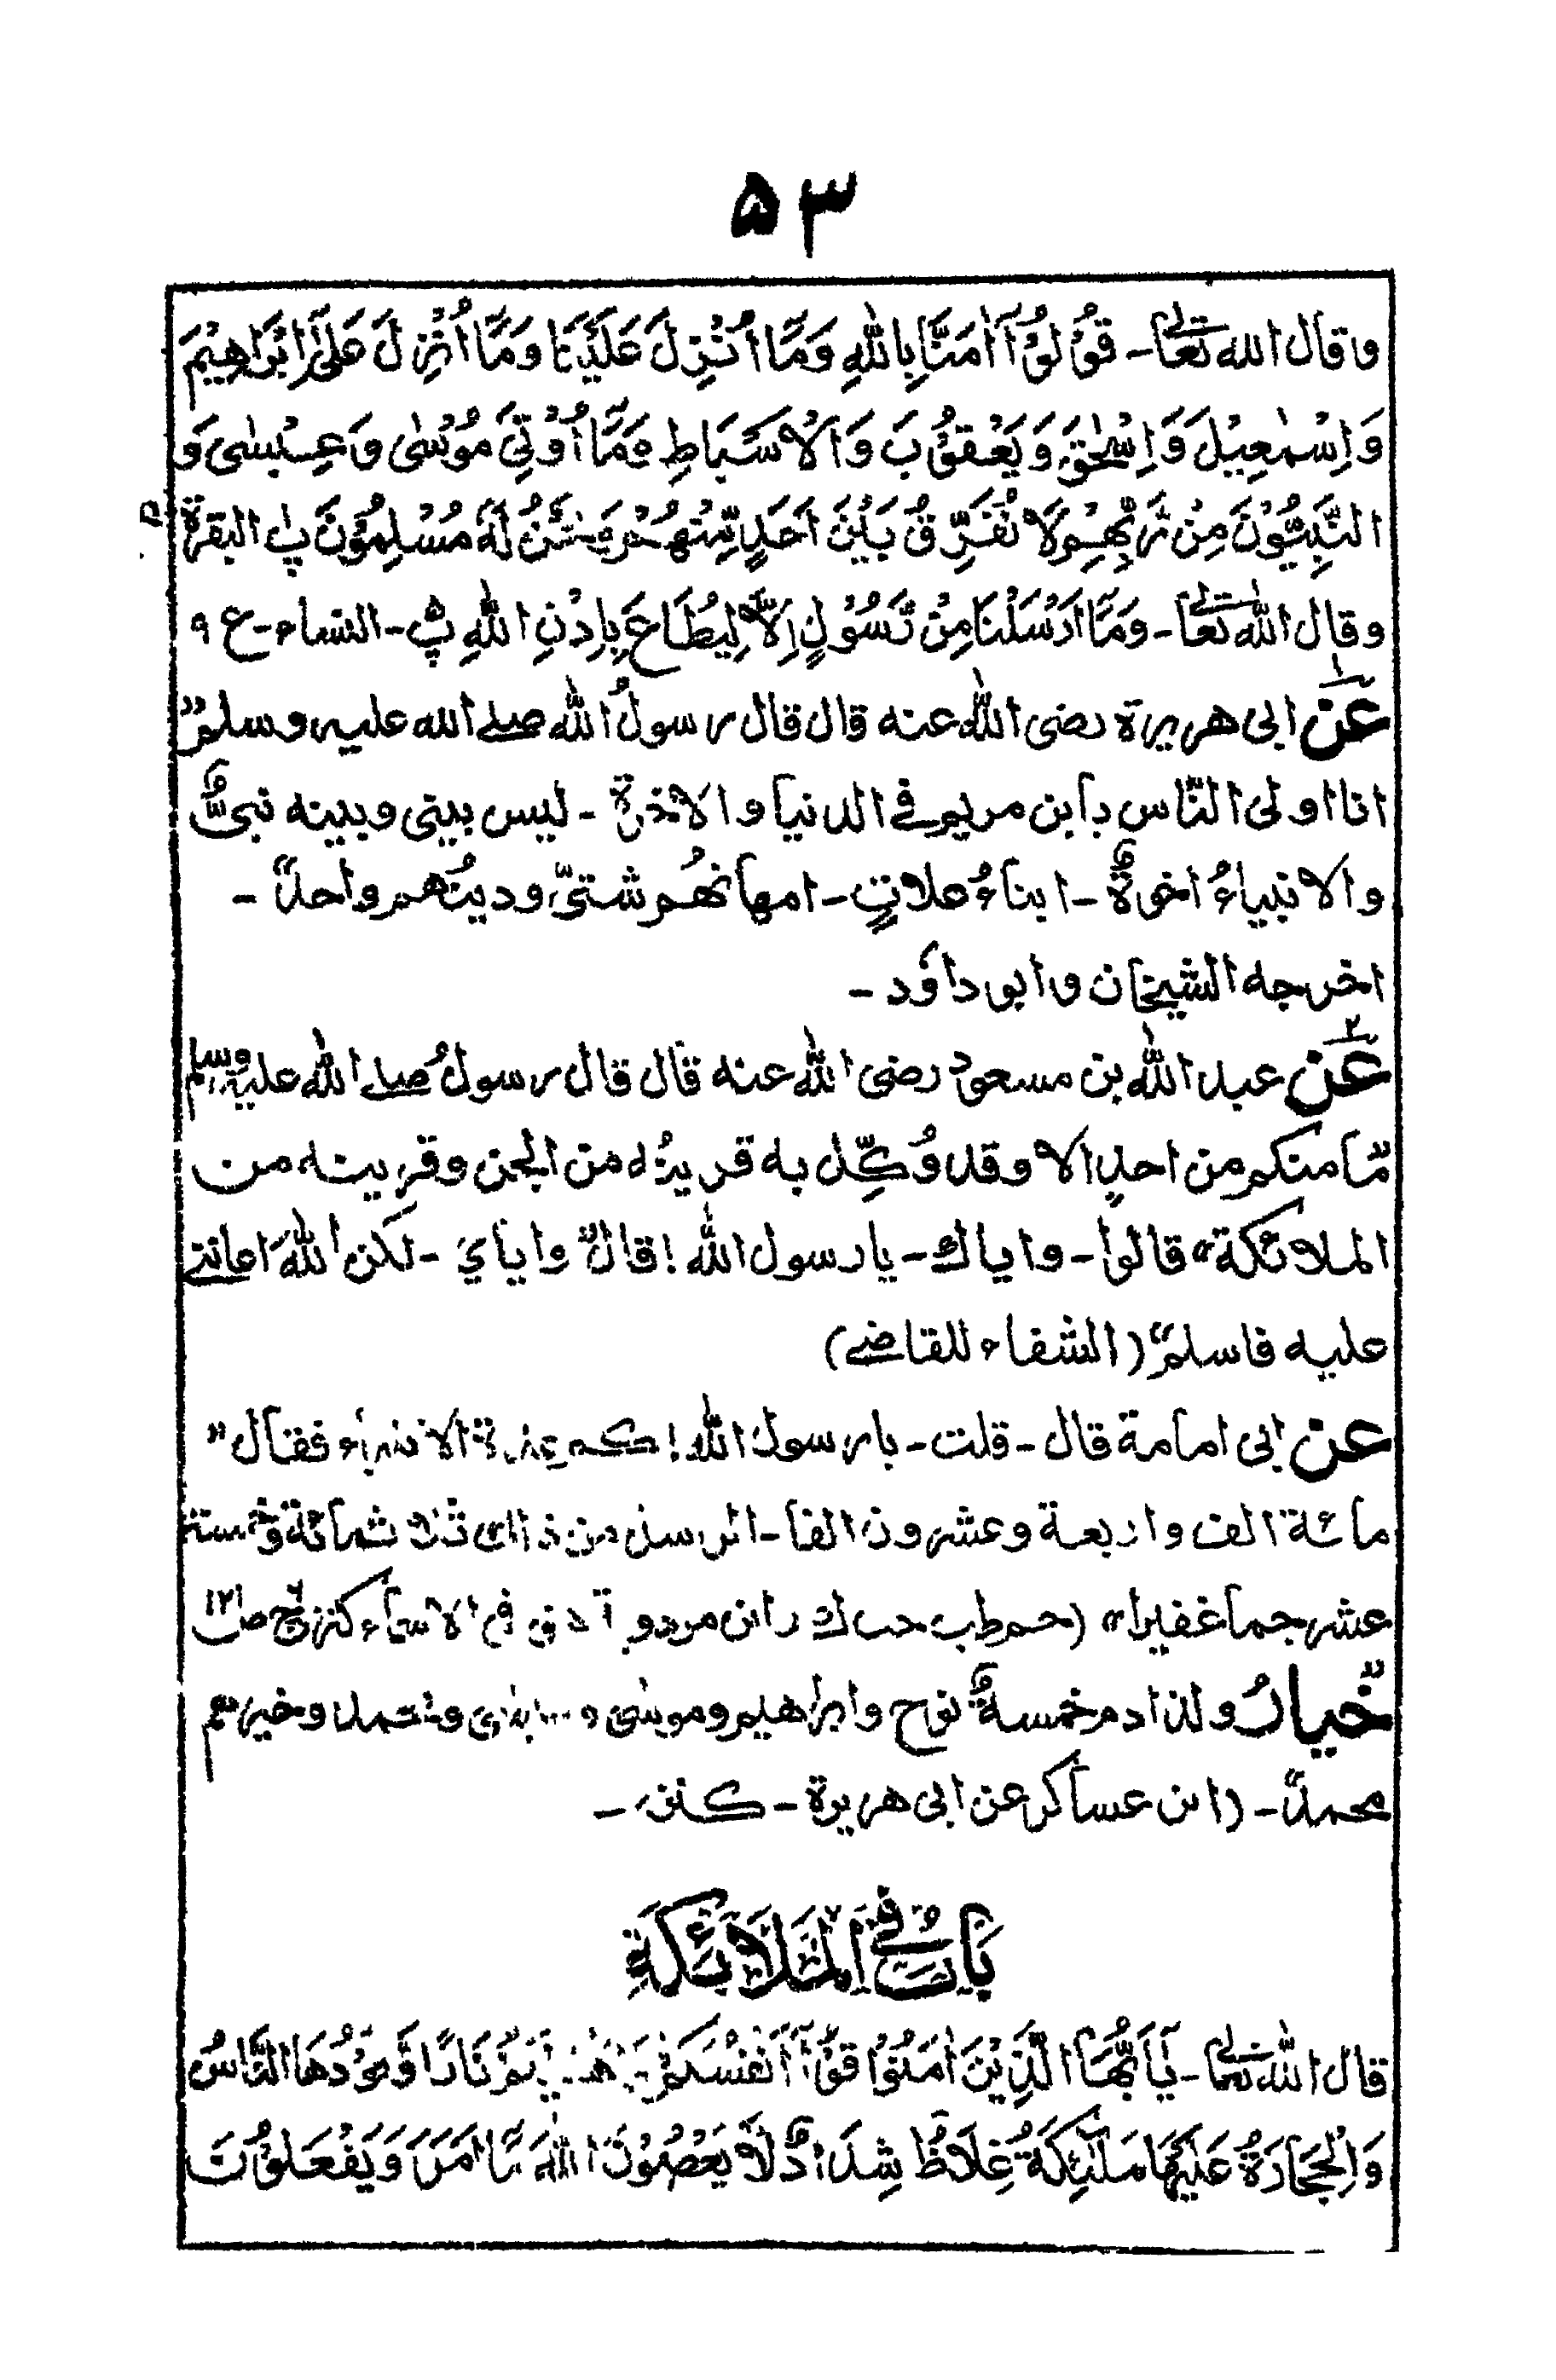 ۵۳
وقال الله تعالى - قُوْلُوْآ اٰمَنَّا بِاللّٰهِ وَمَآ اُنْزِلَ عَلَيْنَا وَمَآ اُنْزِلَ عَلٰٓى اِبْرَاهِيْمَ
وَاِسْمٰعِيْلَ وَاِسْحٰقَ وَيَعْقُوْبَ وَالْاَسْبَاطِ وَمَآ اُوْتِيَ مُوْسٰى وَعِيْسٰى وَ
النَّبِيُّوْنَ مِنْ رَّبِّهِمْ لَا نُفَرِّقُ بَيْنَ اَحَدٍ مِّنْهُمْ وَنَحْنُ لَهٗ مُسْلِمُوْنَ پ البقرة
وقال الله تعالى - وَمَآ اَرْسَلْنَا مِنْ رَّسُوْلٍ اِلَّا لِيُطَاعَ بِاِذْنِ اللّٰهِ پ - النساء - ع ۹
۱ عن ابى هريرة رضى الله عنه قال قال رسولُ الله صلے الله عليه وسلم "
انا اولى النّاس بابن مريم فى الدنيا والاخرة - ليس بينى وبينه نبىٌّ
والانبياءُ اخوةٌ - ابناءُ علاتٍ - امهاتهُم شتىّ ودينُهم واحدٌ -
اخرجه الشيخان وابوداؤد -
۲ عن عبد الله بن مسعود رضى الله عنه قال قال رسولُ صلے الله عليه وسلم
مّا منكم من احدٍ الا وقد وُكِّل به قرينُه من الجن وقرينه من
الملائكة" قالوا - واياك - يا رسول الله! قال" واياي - لكن اللهَ اعاننى
عليه فاسلم" (الشفاء للقاضے)
عن ابى امامة قال - قلت - يا رسول الله! كم عدة الانبياء فقال "
مائة الف واربعة وعشرون الفا - الرسل من ذالك ثلاثمائة وخمسة
عشر جما غفيرا" (حم طب حب ك وابن مردويه فى الاسماء كنز ج۶ ص۱۲۱
"خيارُ ولد ادم خمسةٌ نوح وابراهيم وموسى و وعيسى ومحمد وخيرهم
محمدٌ - (ابن عساكر عن ابى هريرة - كنز -
بَابٌ فِي الْمَلَائِكَةِ
قال الله تعالى - يٰٓاَيُّهَا الَّذِيْنَ اٰمَنُوْا قُوْٓا اَنْفُسَكُمْ وَاَهْلِيْكُمْ نَارًا وَّقُوْدُهَا النَّاسُ
وَالْحِجَارَةُ عَلَيْهَا مَلٰٓئِكَةٌ غِلَاظٌ شِدَادٌ لَّا يَعْصُوْنَ اللّٰهَ مَآ اَمَرَ وَيَفْعَلُوْنَ